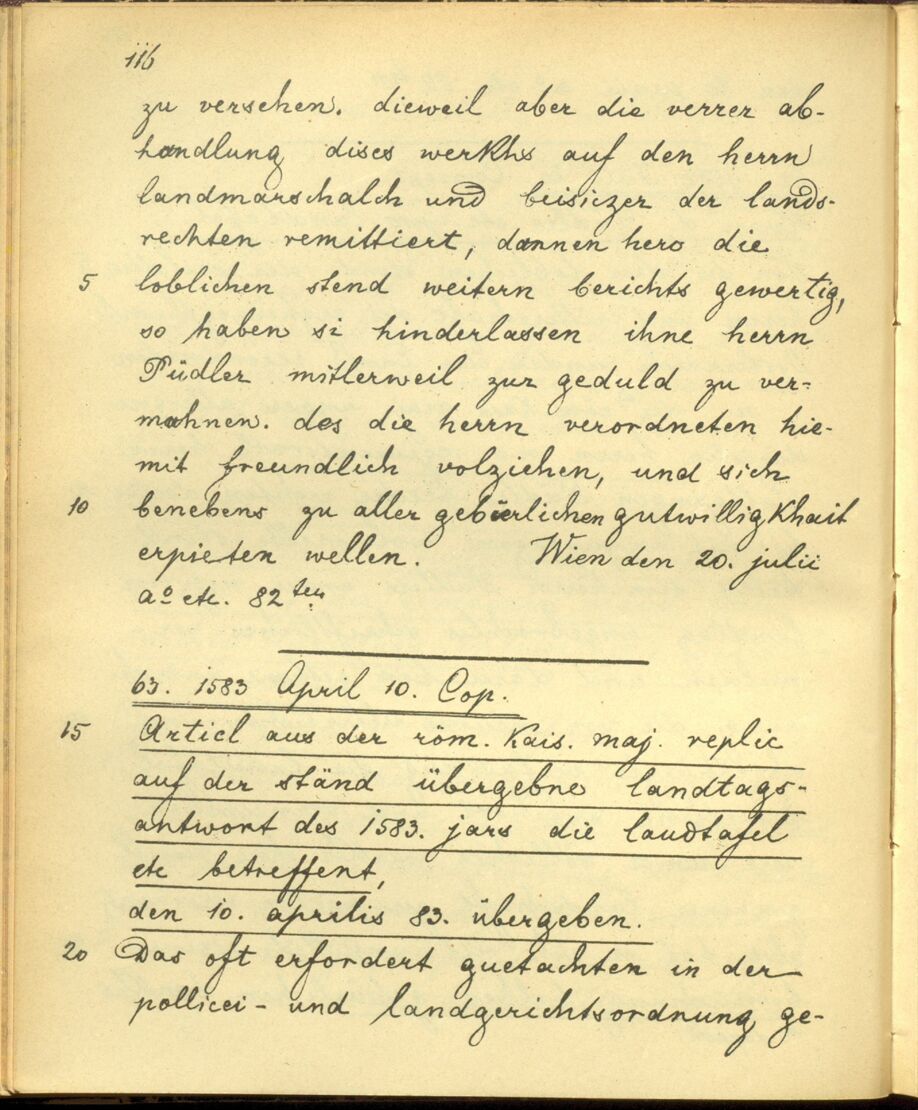 116
zu versehen. dieweil aber die verrer ab-
handlung dises werkhs auf den herrn
landmarschalch und beisiczer der lands-
rechten remittiert, dannen hero die
5 loblichen stend weitern berichts gewertig,
so haben si hinderlassen ihne herrn
Püdler mitlerweil zur geduld zu ver-
mahnen. des die herrn verordneten hie-
mit freundlich volziehen, und sich
10 benebens zu aller gebüerlichen gutwilligkhait
erpieten wellen. Wien den 20. julii
aº etc. 82ten
63. 1583 April 10. Cop.
15 Articl aus der röm. Kais. maj. replic
auf der ständ übergebne landtags-
antwort des 1583. jars die landtafel
etc betreffent,
den 10. aprilis 83. übergeben.
20 Das oft erfordert guetachten in der
pollicei- und landgerichtsordnung ge-